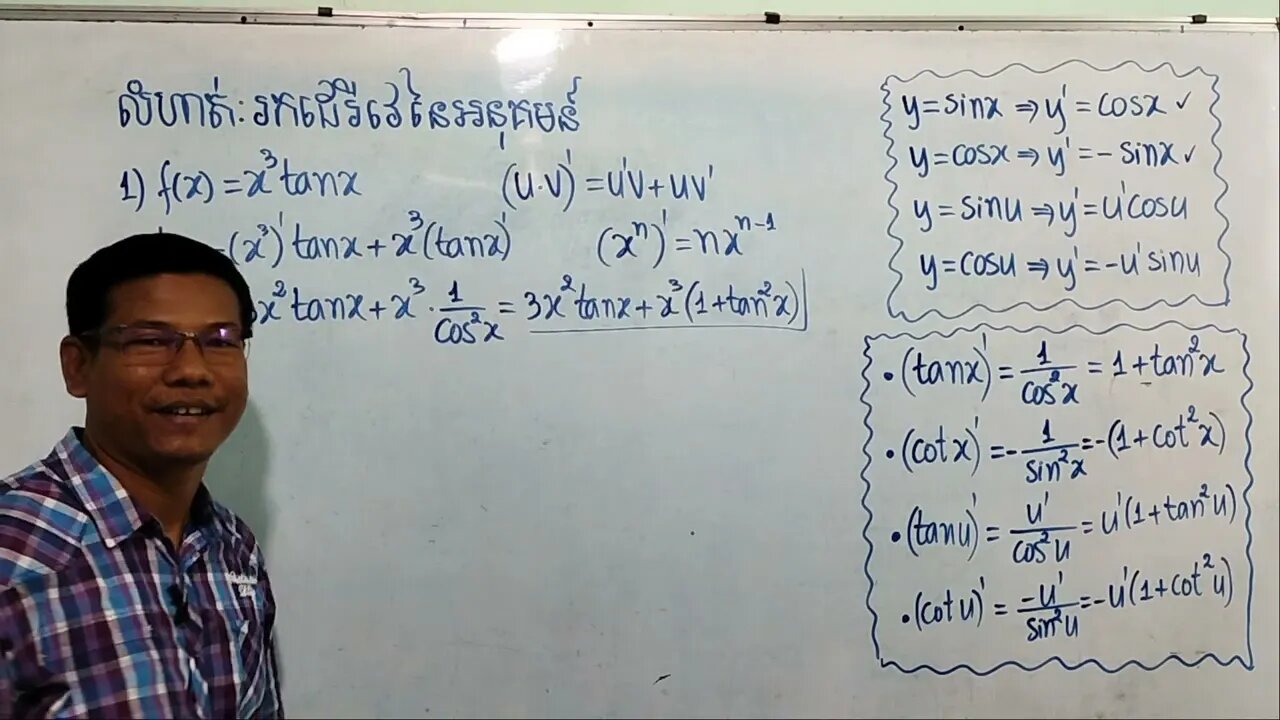 លំហាត់: រកដេរីវេនៃអនុគមន៍
1) f(x) = x³tanx (u·v)' = u'v + uv'
(x³)'tanx + x³(tanx)' (xⁿ)' = nxⁿ⁻¹
x²tanx + x³ · 1/cos²x = 3x²tanx + x³(1+tan²x)
y = sinx ⇒ y' = cosx ✓
y = cosx ⇒ y' = - sinx ✓
y = sinu ⇒ y' = u'cosu
y = cosu ⇒ y' = -u'sinu
• (tanx)' = 1/cos²x = 1 + tan²x
• (cotx)' = - 1/sin²x = -(1+cot²x)
• (tanu)' = u'/cos²u = u'(1+tan²u)
• (cotu)' = -u'/sin²u = -u'(1+cot²u)